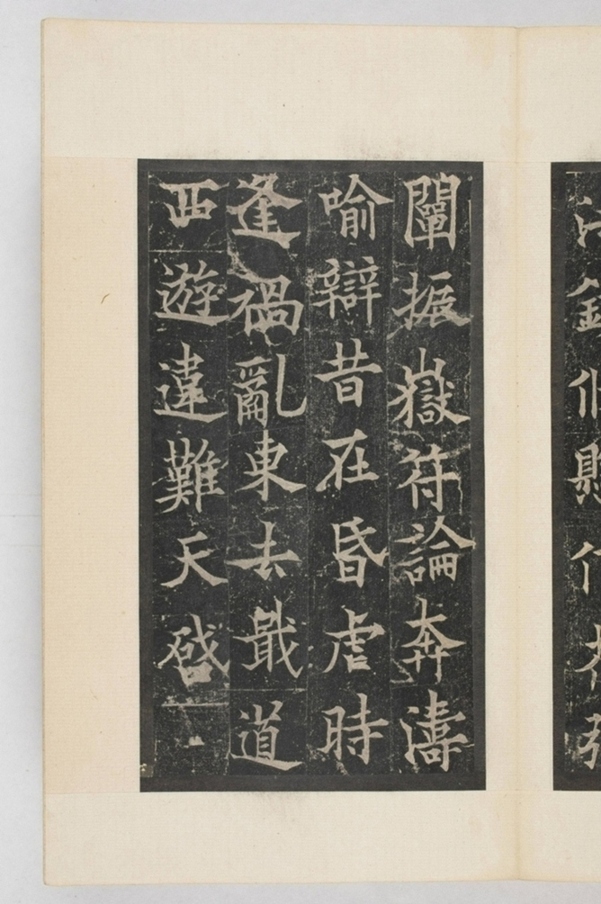 闡振嶽符論奔濤
喻辯昔在昏虐時
逢禍亂東去戢道
西遊違難天